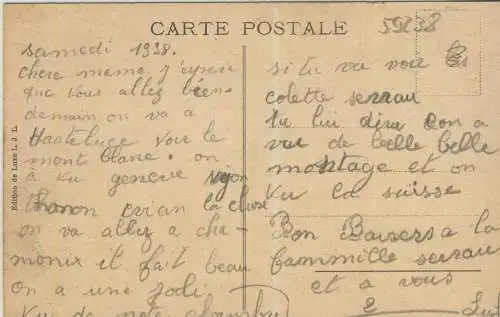 CARTE POSTALE
59238
samedi 1938.
chere meme j'espere
que vous allez bien
demain on va a
Hauteluce voir le
mont blanc. on
a vu geneve
Thonon evian la cluse
on va allez a cha-
monix it fait beau
on a une joli
vu de note chambre
si tu va voir les
colette serrau
tu lui dira con a
vu de belle belle
montage et on
vu la suisse
Bon Baisers a la
fammille serrau
et a vous
2
Edition de Luxe L. J. L.